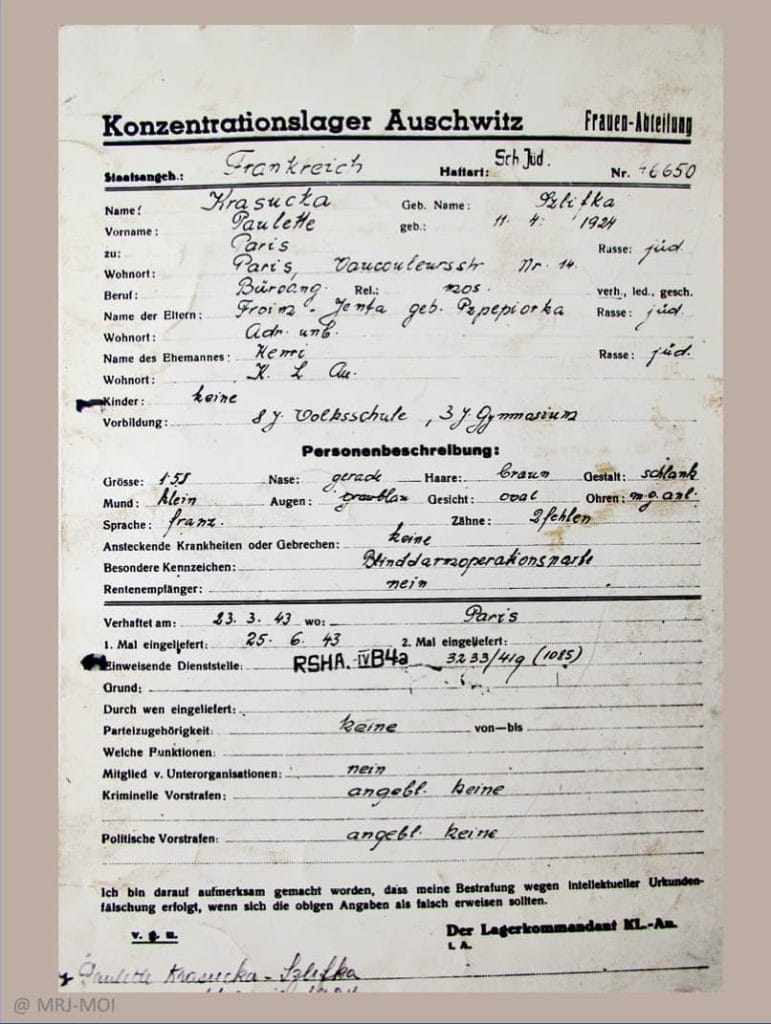 Konzentrationslager Auschwitz Frauen-Abteilung
Staatsangeh.: Frankreich Haftart: Sch Jüd. Nr. 46650
Name: Krasucka Geb. Name: Szlifka
Vorname: Paulette geb.: 11. 4. 1924
zu: Paris Rasse: jüd.
Wohnort: Paris, Vaucouleursstr Nr. 14.
Beruf: Büroang. Rel.: mos. verh., led., gesch.
Name der Eltern: Froim - Jenta geb. Przepiorka Rasse: jüd.
Wohnort: Adr. unb.
Name des Ehemannes: Henri Rasse: jüd.
Wohnort: K. L Au.
Kinder: keine
Vorbildung: 8 J. Volksschule, 3 J. Gymnasium
Personenbeschreibung:
Grösse: 155 Nase: gerade Haare: braun Gestalt: schlank
Mund: klein Augen: graublau Gesicht: oval Ohren: m.g. anl.
Sprache: franz. Zähne: 2 fehlen
Ansteckende Krankheiten oder Gebrechen: keine
Besondere Kennzeichen: Blinddarmoperationsnarbe
Rentenempfänger: nein
Verhaftet am: 23. 3. 43 wo: Paris
1. Mal eingeliefert: 25. 6. 43 2. Mal eingeliefert:
Einweisende Dienststelle: RSHA. IV B4a 3233/41g (1085)
Grund:
Durch wen eingeliefert:
Parteizugehörigkeit: keine von—bis
Welche Funktionen:
Mitglied v. Unterorganisationen: nein
Kriminelle Vorstrafen: angebl. keine
Politische Vorstrafen: angebl. keine
Ich bin darauf aufmerksam gemacht worden, dass meine Bestrafung wegen intellektueller Urkunden-
fälschung erfolgt, wenn sich die obigen Angaben als falsch erweisen sollten.
v. g. u. Der Lagerkommandant KL.-Au.
i. A.
Paulette Krasucka - Szlifka
@ MRJ-MOI